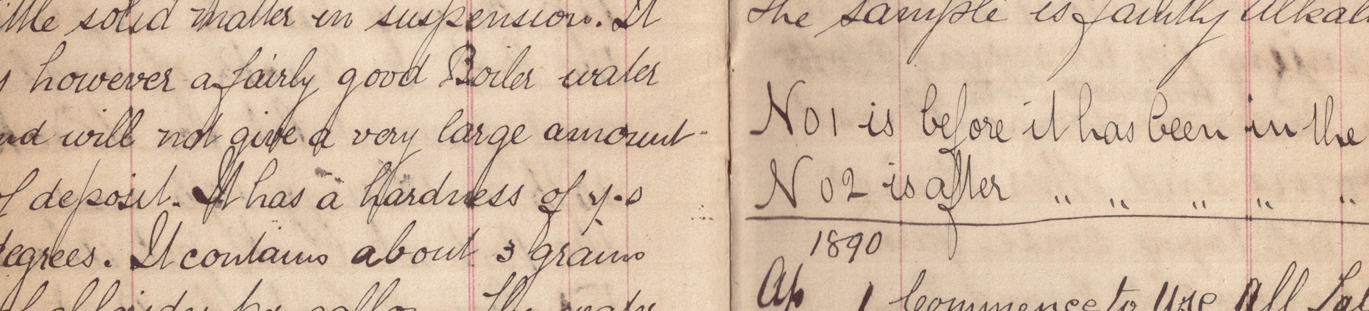 ittle solid matter in suspension. It
however a fairly good Boiler water
and will not give a very large amount
of deposit. It has a hardness of
degrees. It contains about 3 grains
The water
the sample is faintly alkal
No1 is before it has been in the
No2 is after " " " " "
1890
Ap 1 Commence to Use All